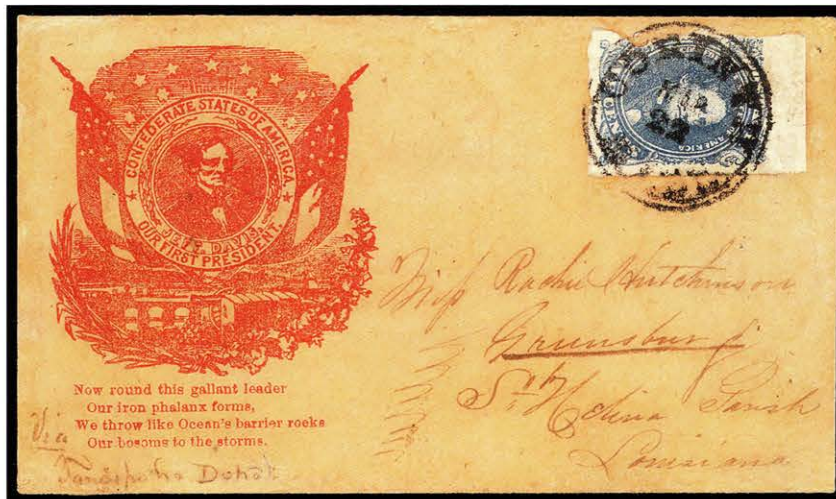 CONFEDERATE STATES OF AMERICA.
JEFF. DAVIS.
OUR FIRST PRESIDENT.
Now round this gallant leader
Our iron phalanx forms,
We throw like Ocean's barrier rocks
Our bosoms to the storms.
CENTS
AMERICA
MAR
22
Miss Rachie Hutchinson
Greensburg
St. Helina Parish
Louisiana
Via